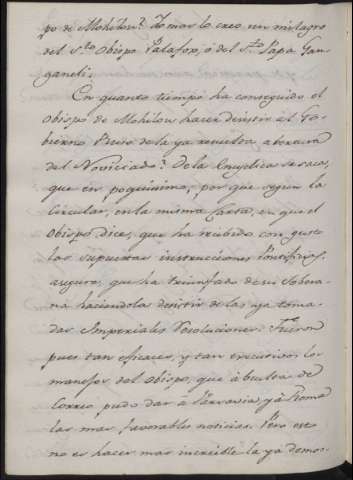 po de Mohilow? Yo mas lo creo un milagro
del Sto Obispo Palafox, ó del Sto Papa Gan-
ganeli.
En quanto tiempo ha conseguido el
Obispo de Mohilow hacer desistir al Go-
bierno Ruso de la ya resuelta abertura
del Noviciado? De la Encyclica se saca,
que en poquisimo; por que segun la
Circular, en la misma Carta, en que el
Obispo dice, que ha recibido con gusto
las supuestas instrucciones Pontificias,
asegura, que ha triunfado de su Sobera-
na haciendola desistir de las ya toma-
das Imperiales Resoluciones. Fueron
pues tan eficaces, y tan executivos los
manejos del Obispo, que á buelta de
Correo pudo dar á Varsavia, y á Roma
las mas favorables noticias. Pero eso
no es hacer mas increible la ya demos-